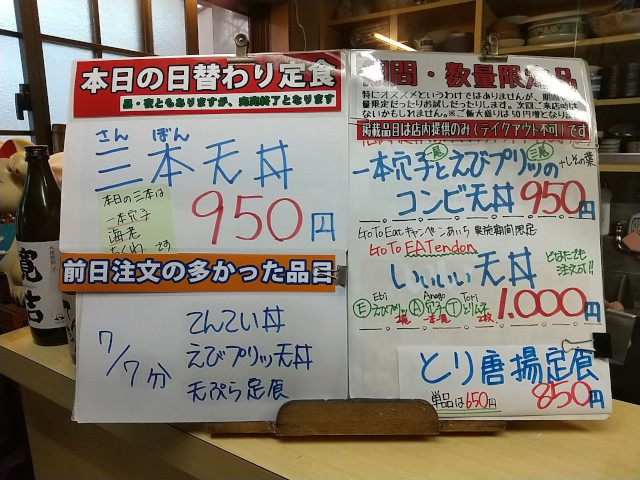 本日の日替わり定食
昼・夜ともありますが、完売終了となります
さん ぼん
三本天丼
本日の三本は
一本穴子
海老
ちくわ です
950円
前日注文の多かった品目
7/7分
てんてい丼
えびプリッ天丼
天ぷら定食
期間・数量限定品
特にオススメというわけではありませんが、期間や
量限定だったりお試しだったりします。次回ご来店時は
ないかもしれません。※ご飯大盛りは50円増となりま
掲載品目は店内提供のみ(テイクアウト不可)です
一尾 三尾
一本穴子とえびプリッの +しその葉
コンビ天丼 950円
GoToEatキャンペーンあいち 実施期間限定
GoTo EATendon
いいいい天丼 どなたでも
注文可!!
Ebi Anago Tori
Ⓔえびプリッ Ⓐ穴子 Ⓣとりムネ
一本
1.000円
とり唐揚定食
単品は650円 850円